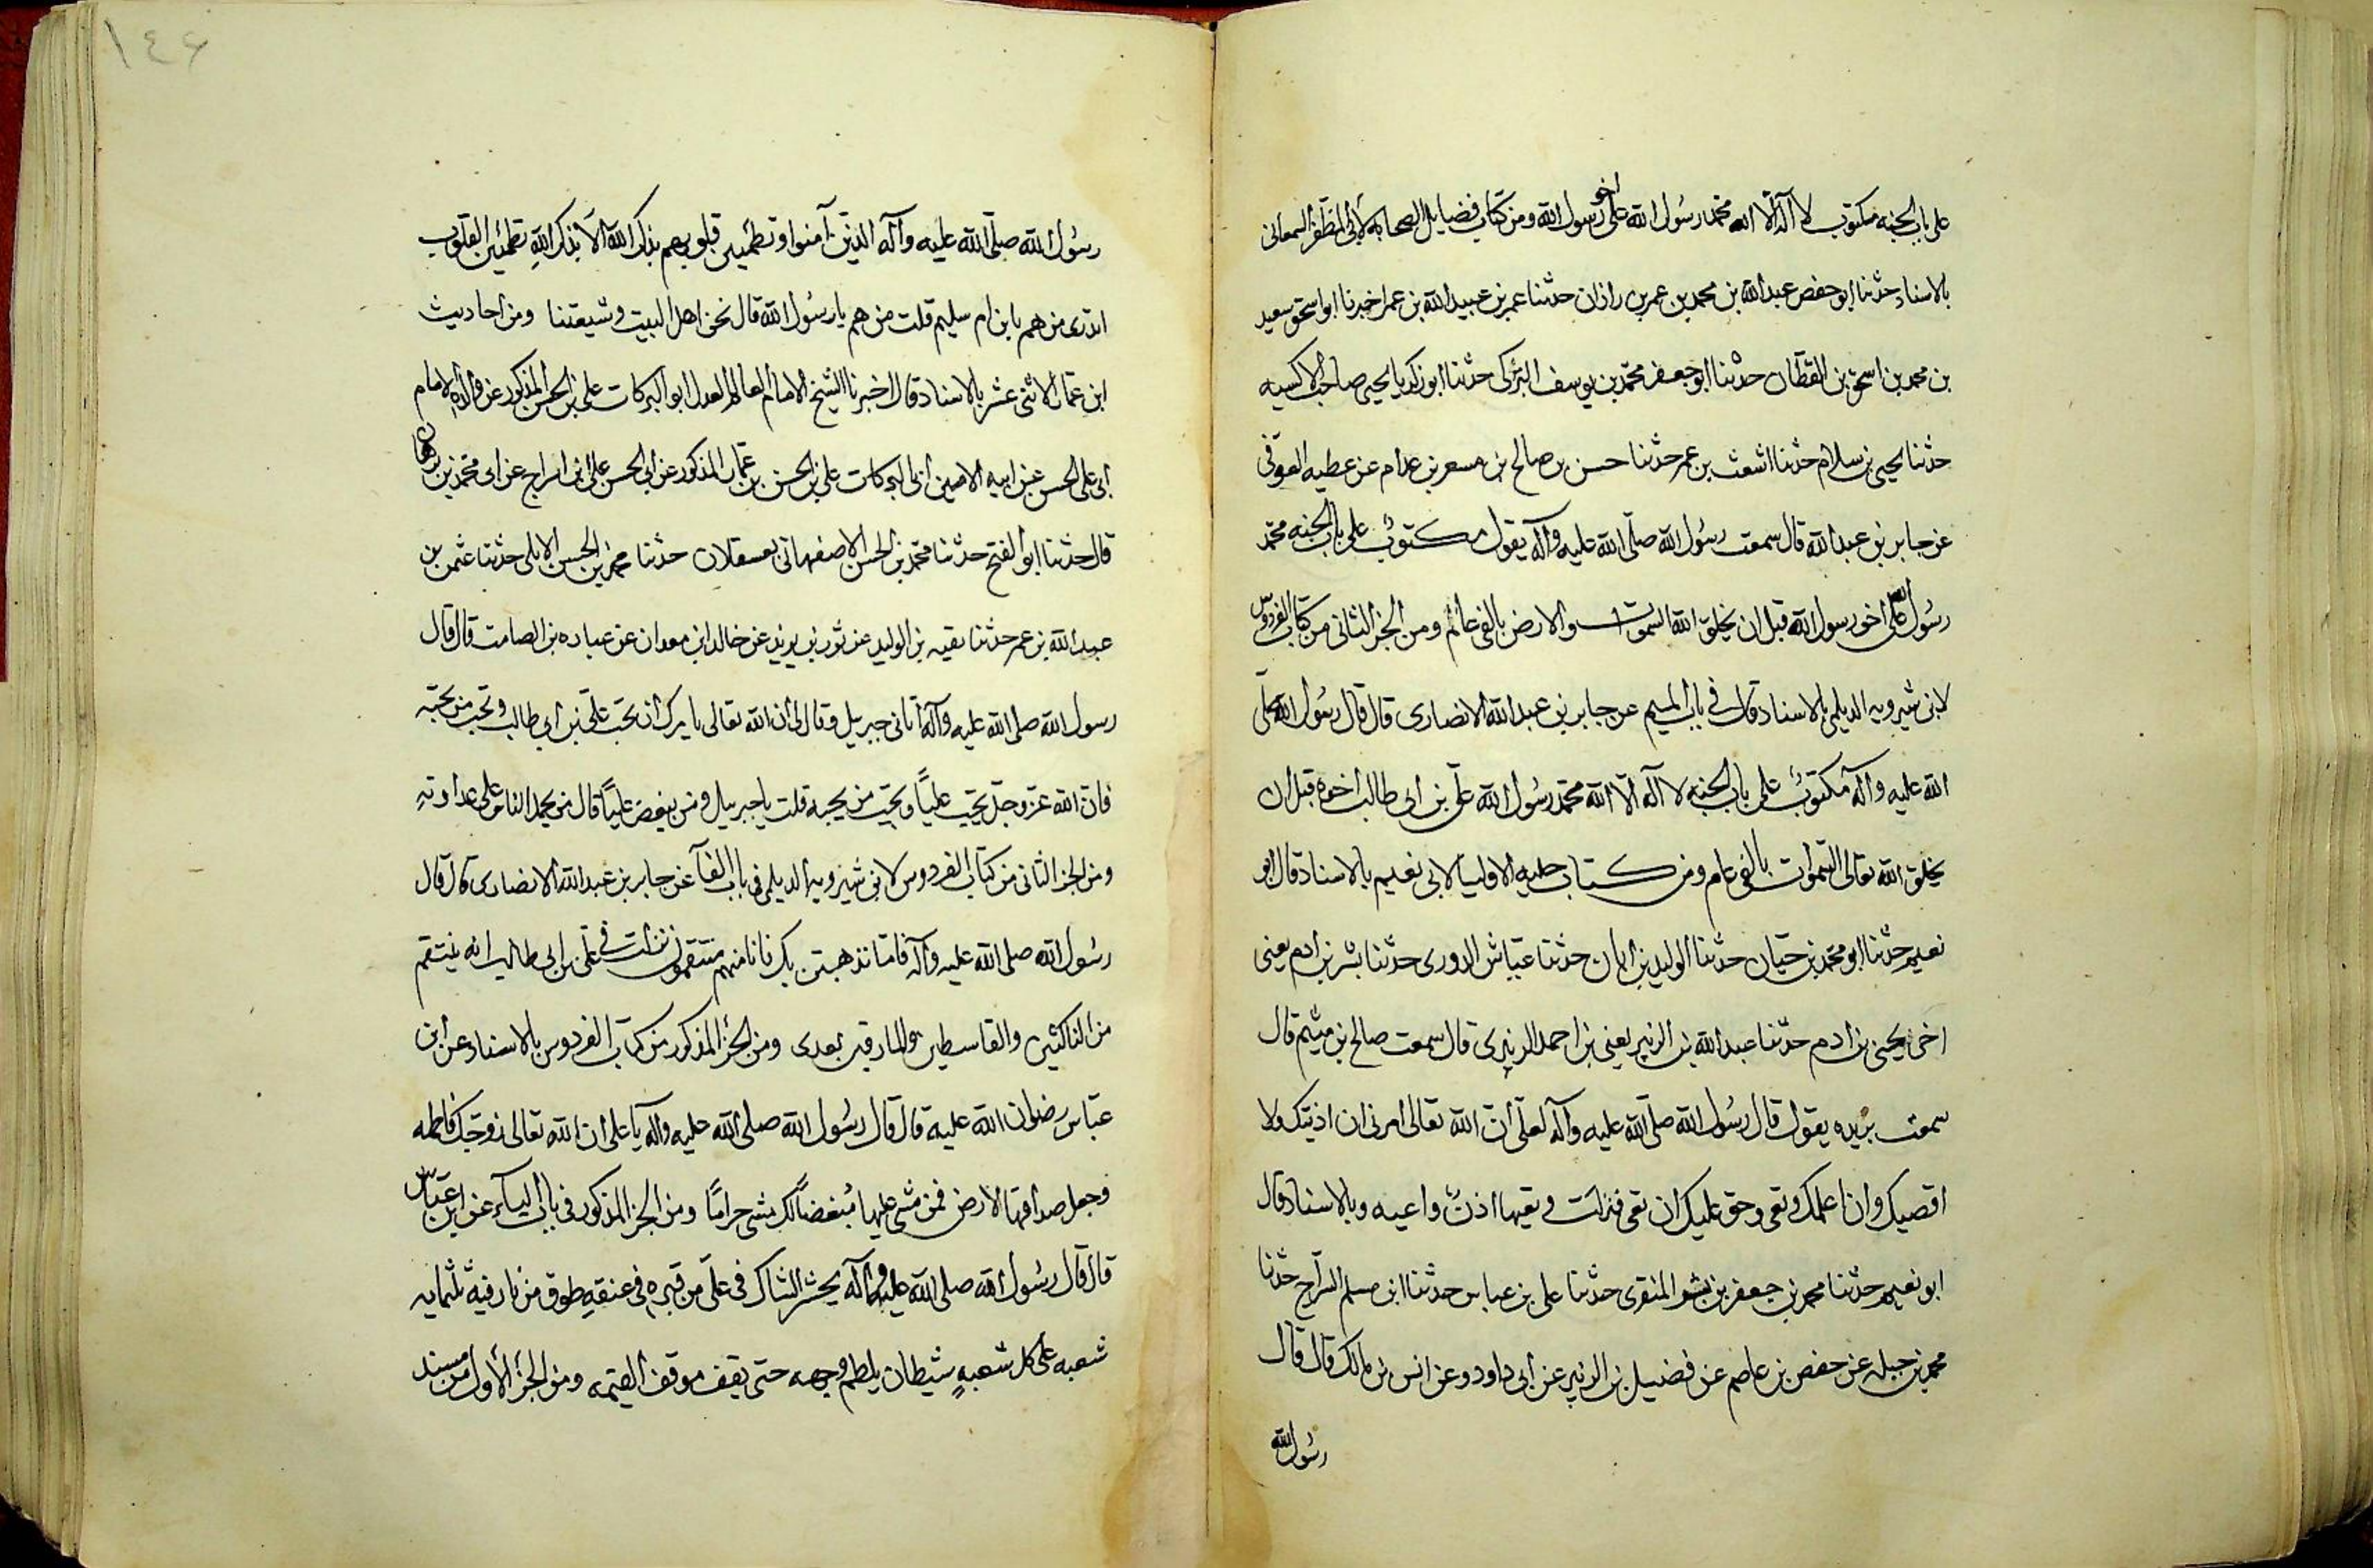 على باب الجنه مكتوب لا اله الا الله محمد رسول الله على اخو رسول الله ومن كتاب فضايل الصحابه لابى المظفر السمعانى
بالاسناد حدثنا ابو حفص عبدالله بن محمد بن عمر بن زاذان حدثنا عمر بن عبيدالله بن عمر اخبرنا ابو اسحق سعيد
بن محمد بن اسحق بن القطان حدثنا ابو جعفر محمد بن يوسف التركى حدثنا ابو زكريا يحيى صاحب الاكسيه
حدثنا يحيى بن سلام حدثنا اشعث بن عمر حدثنا حسن بن صالح بن مسعر بن عدام عن عطيه العوفى
عن جابر بن عبدالله قال سمعت رسول الله صلى الله عليه وآله يقول مكتوب على باب الجنه محمد
رسول الله على اخو رسول الله قبل ان يخلق الله السموات والارض بالفى عالم ومن الجزء الثانى من كتاب الفردوس
لابن شيرويه الديلمى بالاسناد قال فى باب الميم عن جابر بن عبدالله الانصارى قال قال رسول الله صلى
الله عليه وآله مكتوب على باب الجنه لا اله الا الله محمد رسول الله على بن ابى طالب اخوه قبل ان
يخلق الله تعالى السموات بالفى عام ومن كتاب حليه الاوليا لابى نعيم بالاسناد قال ابو
نعيم حدثنا ابو محمد بن حيان حدثنا الوليد بن ابان حدثنا عباش الدورى حدثنا بشر بن ادم يعنى
اخى يحيى بن ادم حدثنا عبدالله بن الزبير يعنى بن احمد الزبيرى قال سمعت صالح بن ميثم قال
سمعت بريده يقول قال رسول الله صلى الله عليه وآله لعلى ان الله تعالى امرنى ان ادنيك ولا
اقصيك وان اعلمك وتعى وحق عليك ان تعى فنزلت وتعيها اذن واعيه وبالاسناد قال
ابو نعيم حدثنا محمد بن جعفر بن بشر المنقرى حدثنا على بن عباس حدثنا ابن مسلم السراج حدثنا
محمد بن جبله عن حفص بن عاصم عن فضيل بن الزبير عن ابى داود وعن انس بن مالك قال قال
رسول الله
١٤۶
رسول الله صلى الله عليه وآله الذين آمنوا وتطمئن قلوبهم بذكر الله الا بذكر الله تطمئن القلوب
اتدرى من هم يا بن ام سليم قلت من هم يا رسول الله قال نحن اهل البيت وشيعتنا ومن احاديث
ابن عمار الاثنى عشر بالاسناد قال اخبرنا الشيخ الامام العالم العدل ابو البركات على بن الحسن المذكور عن والده الامام
ابى على الحسن عن ابيه الامين ابى البركات على بن الحسن بن عمار المذكور عن ابى الحسن على بن السراج عن ابى محمد بن برهان
قال حدثنا ابو الفتح حدثنا محمد بن الحسن الاصفهانى بعسقلان حدثنا محمد بن الحسن الايلى حدثنا عثمن بن
عبدالله بن عمر حدثنا بقيه بن الوليد عن ثور بن يزيد عن خالد ابن معدان عن عباده بن الصامت قال قال
رسول الله صلى الله عليه وآله اتانى جبريل وقال لى ان الله تعالى يامرك ان تحب على بن ابى طالب وتحب من يحبه
فان الله عز وجل يحب عليا ويحب من يحبه قلت يا جبريل ومن يبغض عليا قال من يحمل الناس على عداوته
ومن الجزء الثانى من كتاب الفردوس لابن شيرويه الديلمى فى باب الفآ عن جابر بن عبدالله الانصارى قال قال
رسول الله صلى الله عليه وآله فاما نذهبن بك فانا منهم منتقمون نزلت فى على بن ابى طالب انه ينتقم
من الناكثين والقاسطين والمارقين بعدى ومن الجزء المذكور من كتاب الفردوس بالاسناد عن ابن
عباس رضوان الله عليه قال قال رسول الله صلى الله عليه وآله يا على ان الله تعالى زوجك فاطمه
وجعل صداقها الارض فمن مشى عليها مبغضا لك مشى حراما ومن الجزء المذكور فى باب اليآء عن ابن عباس
قال قال رسول الله صلى الله عليه وآله يحشر الشاك فى على من قبره فى عنقه طوق من نار فيه ثلثمايه
شعبه على كل شعبه شيطان يلطم وجهه حتى يقف موقف القيمه ومن الجزء الاول من مسند